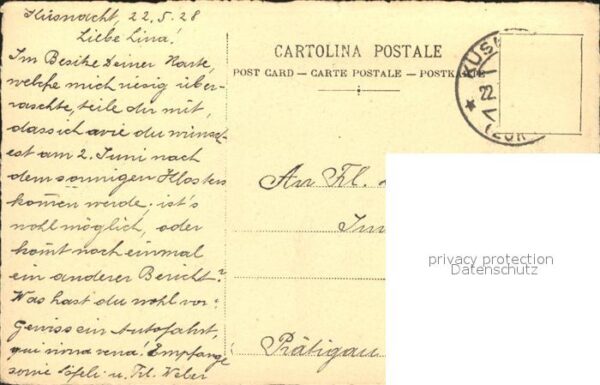 Küsnacht, 22.5.28
Liebe Lina!
Im Besitze Deiner Karte,
welche mich riesig über-
raschte, teile dir mit,
dass ich wie du wünsch-
est am 2. Juni nach
dem sonnigen Klosters
kommen werde; ist's
wohl möglich, oder
kommt noch einmal
ein anderer Bericht?
Was hast du wohl vor?
Gewiss ein Autofahrt,
Empfange
sowie u. Frl. Weber
CARTOLINA POSTALE
POST CARD — CARTE POSTALE — POSTKARTE
KÜSN
22
(ZÜR
An Frl.
Prätigau
privacy protection
Datenschutz